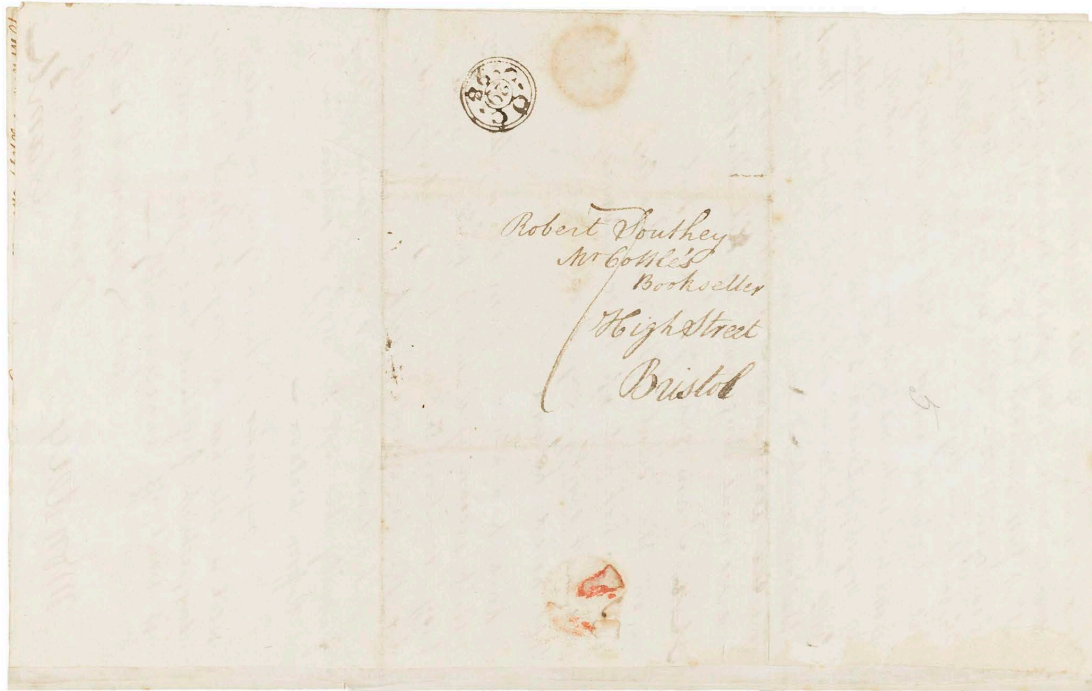 Robert Southey
Mr Cottle's
Bookseller
High Street
Bristol